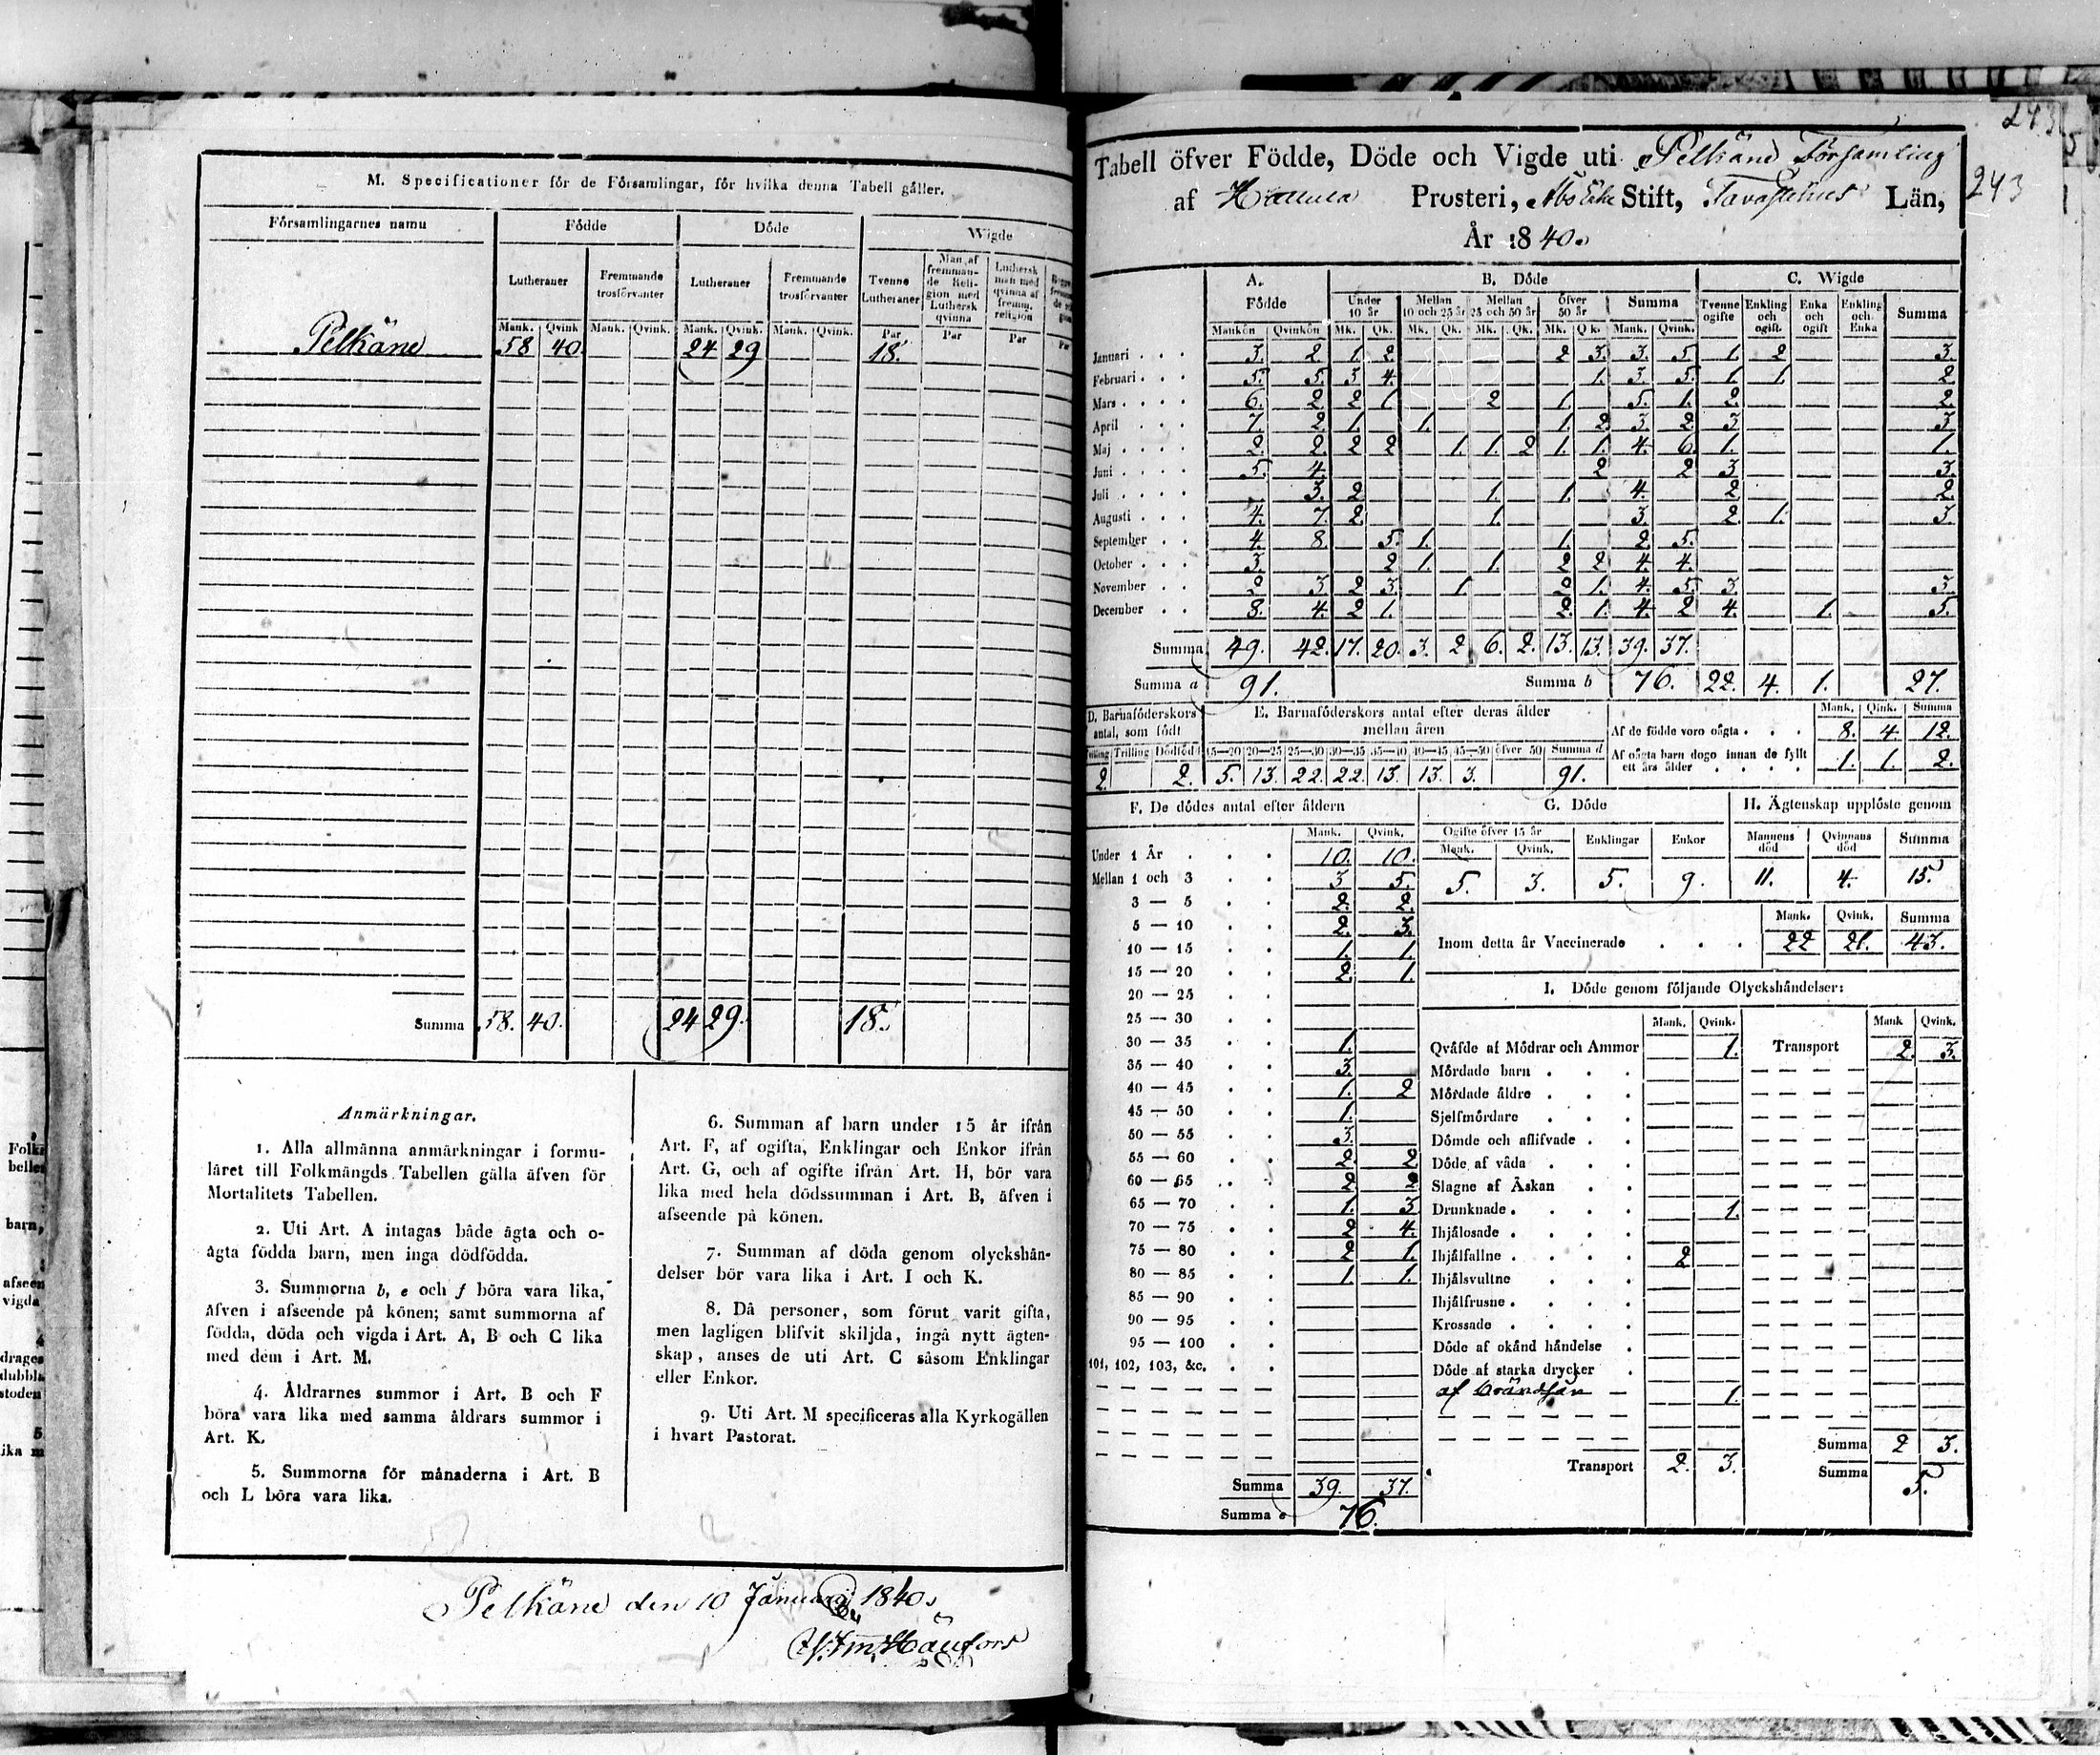 M. Specificationer för de Församlingar, för hvilka denna Tabell gäller.
Församlingarnes namn Födde Döde Wigde
Lutheraner Fremmande trosförvanter Lutheraner Fremmande trosförvanter Tvenne Lutheraner Man af fremmande Religion med Luthersk qvinna Luthersk man med qvinna af fremm. religion
Mank. Qvink Mank. Qvink. Mank. Qvink. Mank. Qvink. Par Par Par Par
Pelkäne 58 40 24 29 18.
Summa 58. 40. 24 29. 18.
Anmärkningar.
1. Alla allmänna anmärkningar i formu-
läret till Folkmängds Tabellen gälla äfven för
Mortalitets Tabellen.
2. Uti Art. A intagas både ägta och o-
ägta födda barn, men inga dödfödda.
3. Summorna b, e och f böra vara lika,
äfven i afseende på könen; samt summorna af
födda, döda och vigda i Art. A, B och C lika
med dem i Art. M.
4. Åldrarnes summor i Art. B och F
böra vara lika med samma åldrars summor i
Art. K.
5. Summorna för månaderna i Art. B
och L böra vara lika.
6. Summan af barn under 15 år ifrån
Art. F, af ogifta, Enklingar och Enkor ifrån
Art. G, och af ogifte ifrån Art. H, bör vara
lika med hela dödssumman i Art. B, äfven i
afseende på könen.
7. Summan af döda genom olyckshän-
delser bör vara lika i Art. I och K.
8. Då personer, som förut varit gifta,
men lagligen blifvit skiljda, ingå nytt ägten-
skap, anses de uti Art. C såsom Enklingar
eller Enkor.
9. Uti Art. M specificeras alla Kyrkogällen
i hvart Pastorat.
Pelkäne den 10 Januari 1840.
243
243
Tabell öfver Födde, Döde och Vigde uti Pelkäne Församling
af Prosteri, Åbo Erke Stift, Tavastehus Län,
År 1840.
A. Födde B. Döde C. Wigde
Under 10 år Mellan 10 och 25 år Mellan 25 och 50 år öfver 50 år Summa Tvenne ogifte Enkling och ogift. Enka och ogift Enkling och Enka Summa
Mankön Qvinkön Mk. Qk. Mk. Qk. Mk. Qk. Mk. Qk. Mank. Qvink.
Januari 3. 2. 1. 2. 2 3. 3. 5. 1. 2 3.
Februari 5. 5. 3 4. 1. 3. 5. 1. 1. 2.
Mars 6. 2. 2 1. 2 1. 5. 1. 2. 2.
April 7. 2. 1. 1. 1. 2 3. 2 3 3.
Maj 2. 2. 2 2 1. 1. 2 1. 1. 4. 6. 1. 1.
Juni 5. 4. 2 2 3 3.
Juli 3. 2 1. 1. 4. 2 2.
Augusti 4. 7. 2. 1. 3. 2. 1. 3.
September 4. 8. 5. 1. 1. 2. 5.
October 3. 2 1. 1. 2 2 4. 4.
November 2 3 2 3. 1 2 1. 4. 5. 3. 3.
December 8. 4. 2 1. 2. 1. 4. 2 4. 1. 5.
Summa 49. 42. 17. 20. 3. 2 6. 2. 13. 13. 39. 37.
Summa a 91. Summa b 76. 22. 4. 1. 27.
D. Barnaföderskors antal, som födt
Tvilling Trilling Dödfödt
2. 2.
E. Barnaföderskors antal efter deras ålder mellan åren
15—20 20—25 25—30 30—35 35—40 40—45 45—50 öfver 50 Summa d
5. 13. 22. 22. 13. 13. 3. 91.
Mank. Qink. Summa
Af de födde voro oägta 8. 4. 12.
Af oägta barn dogo innan de fyllt ett års ålder 1. 1. 2.
F. De dödes antal efter åldern
Mank. Qvink.
Under 1 År 10. 10.
Mellan 1 och 3 3 5.
3 — 5 2. 2.
5 — 10 2. 3.
10 — 15 1. 1.
15 — 20 2 1.
20 — 25
25 — 30
30 — 35 1.
35 — 40 3.
40 — 45 1. 2
45 — 50 1.
50 — 55 3.
55 — 60 2. 2
60 — 65 2 2
65 — 70 1. 3
70 — 75 2 4.
75 — 80 2 1.
80 — 85 1. 1.
85 — 90
90 — 95
95 — 100
101, 102, 103, &c.
Summa 39. 37.
Summa e 76.
G. Döde
Ogifte öfver 15 år Enklingar Enkor
Mank. Qvink.
5. 3. 5. 9.
H. Ägtenskap upplöste genom
Mannens död Qvinnans död Summa
11. 4. 15.
Mank. Qvink. Summa
Inom detta år Vaccinerade 22 21. 43.
I. Döde genom följande Olyckshändelser:
Mank. Qvink. Mank Qvink.
Qväfde af Mödrar och Ammor 1. Transport 2. 3.
Mördade barn
Mördade äldre
Sjelfmördare
Dömde och aflifvade
Döde af våda
Slagne af Åskan
Drunknade 1.
Ihjälosade
Ihjälfallne 2
Ihjälsvultne
Ihjälfrusne
Krossade
Döde af okänd händelse
Döde af starka drycker
af 1.
Transport 2. 3.
Summa 2 3.
Summa 5.